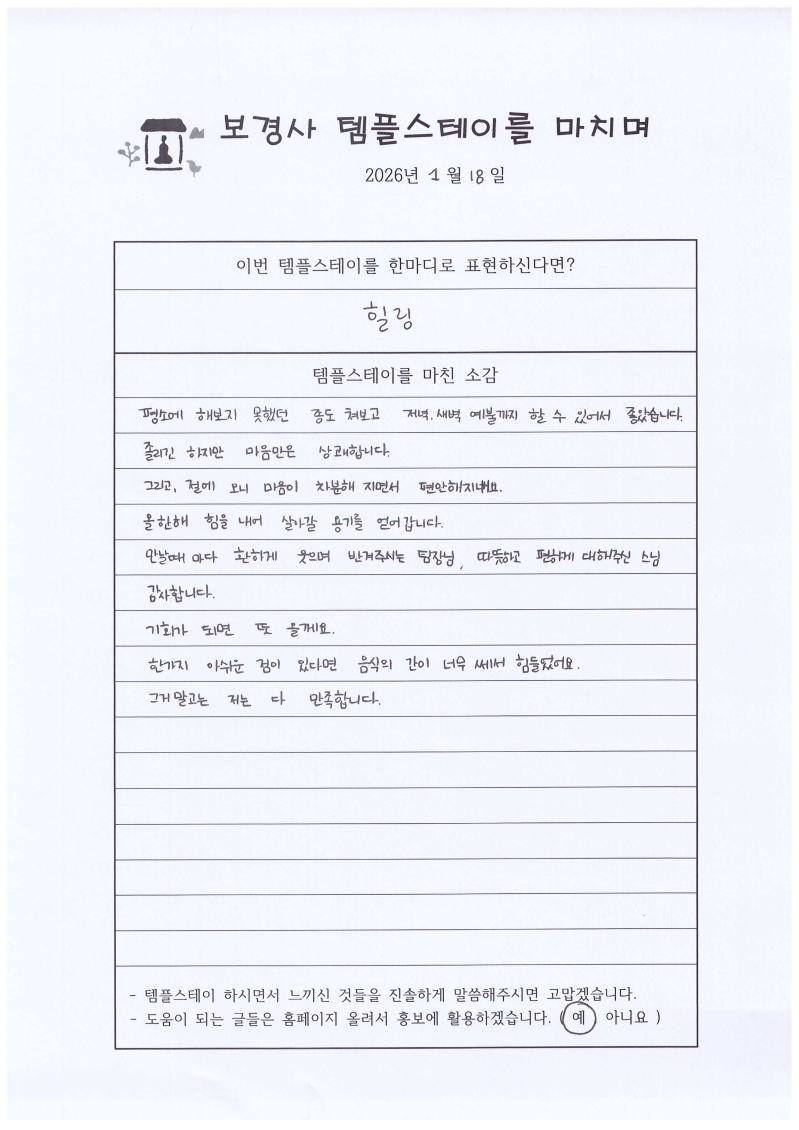 보경사 템플스테이를 마치며
2026년 1월 18일
이번 템플스테이를 한마디로 표현하신다면?
힐링
템플스테이를 마친 소감
평소에 해보지 못했던 종도 쳐보고 저녁.새벽 예불까지 할 수 있어서 좋았습니다.
졸리긴 하지만 마음만은 상쾌합니다.
그리고, 절에 오니 마음이 차분해 지면서 편안해지네요.
올한해 힘을 내어 살아갈 용기를 얻어갑니다.
만날때 마다 환하게 웃으며 반겨주시는 팀장님, 따뜻하고 편하게 대해주신 스님
감사합니다.
기회가 되면 또 올께요.
한가지 아쉬운 점이 있다면 음식의 간이 너무 쎄서 힘들었어요.
그거말고는 저는 다 만족합니다.
- 템플스테이 하시면서 느끼신 것들을 진솔하게 말씀해주시면 고맙겠습니다.
- 도움이 되는 글들은 홈페이지 올려서 홍보에 활용하겠습니다. ( 예 아니요 )